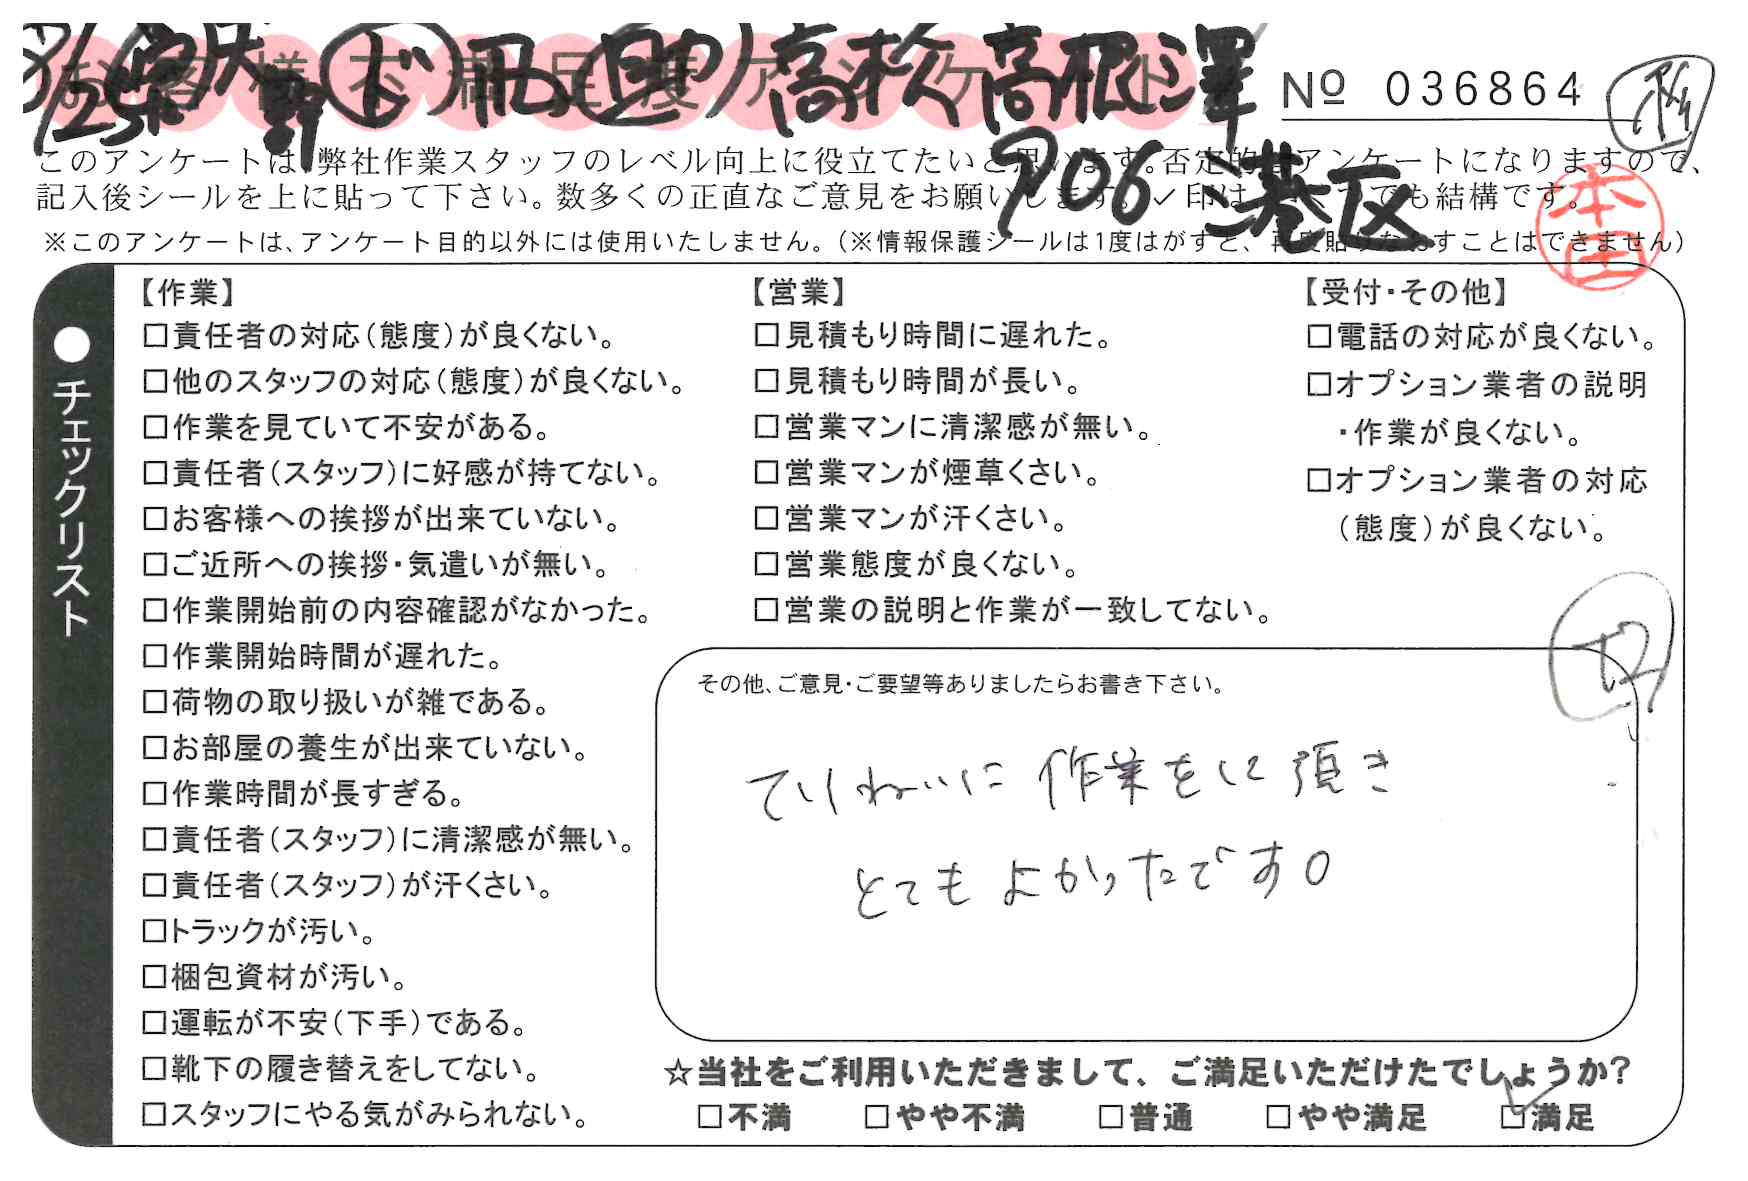 お客様不満足度アンケート
高松 高根澤
906 港区
№ 036864
このアンケートは、弊社作業スタッフのレベル向上に役立てたいと思います。否定的なアンケートになりますので、
記入後シールを上に貼って下さい。数多くの正直なご意見をお願いします。✓印はいくつでも結構です。
※このアンケートは、アンケート目的以外には使用いたしません。(※情報保護シールは1度はがすと、再度貼りなおすことはできません)
本田
●チェックリスト
【作業】
□責任者の対応(態度)が良くない。
□他のスタッフの対応(態度)が良くない。
□作業を見ていて不安がある。
□責任者(スタッフ)に好感が持てない。
□お客様への挨拶が出来ていない。
□ご近所への挨拶・気遣いが無い。
□作業開始前の内容確認がなかった。
□作業開始時間が遅れた。
□荷物の取り扱いが雑である。
□お部屋の養生が出来ていない。
□作業時間が長すぎる。
□責任者(スタッフ)に清潔感が無い。
□責任者(スタッフ)が汗くさい。
□トラックが汚い。
□梱包資材が汚い。
□運転が不安(下手)である。
□靴下の履き替えをしてない。
□スタッフにやる気がみられない。
【営業】
□見積もり時間に遅れた。
□見積もり時間が長い。
□営業マンに清潔感が無い。
□営業マンが煙草くさい。
□営業マンが汗くさい。
□営業態度が良くない。
□営業の説明と作業が一致してない。
【受付・その他】
□電話の対応が良くない。
□オプション業者の説明
・作業が良くない。
□オプション業者の対応
(態度)が良くない。
その他、ご意見・ご要望等ありましたらお書き下さい。
ていねいに作業をして頂き
とてもよかったです。
☆当社をご利用いただきまして、ご満足いただけたでしょうか?
□不満 □やや不満 □普通 □やや満足 ☑満足